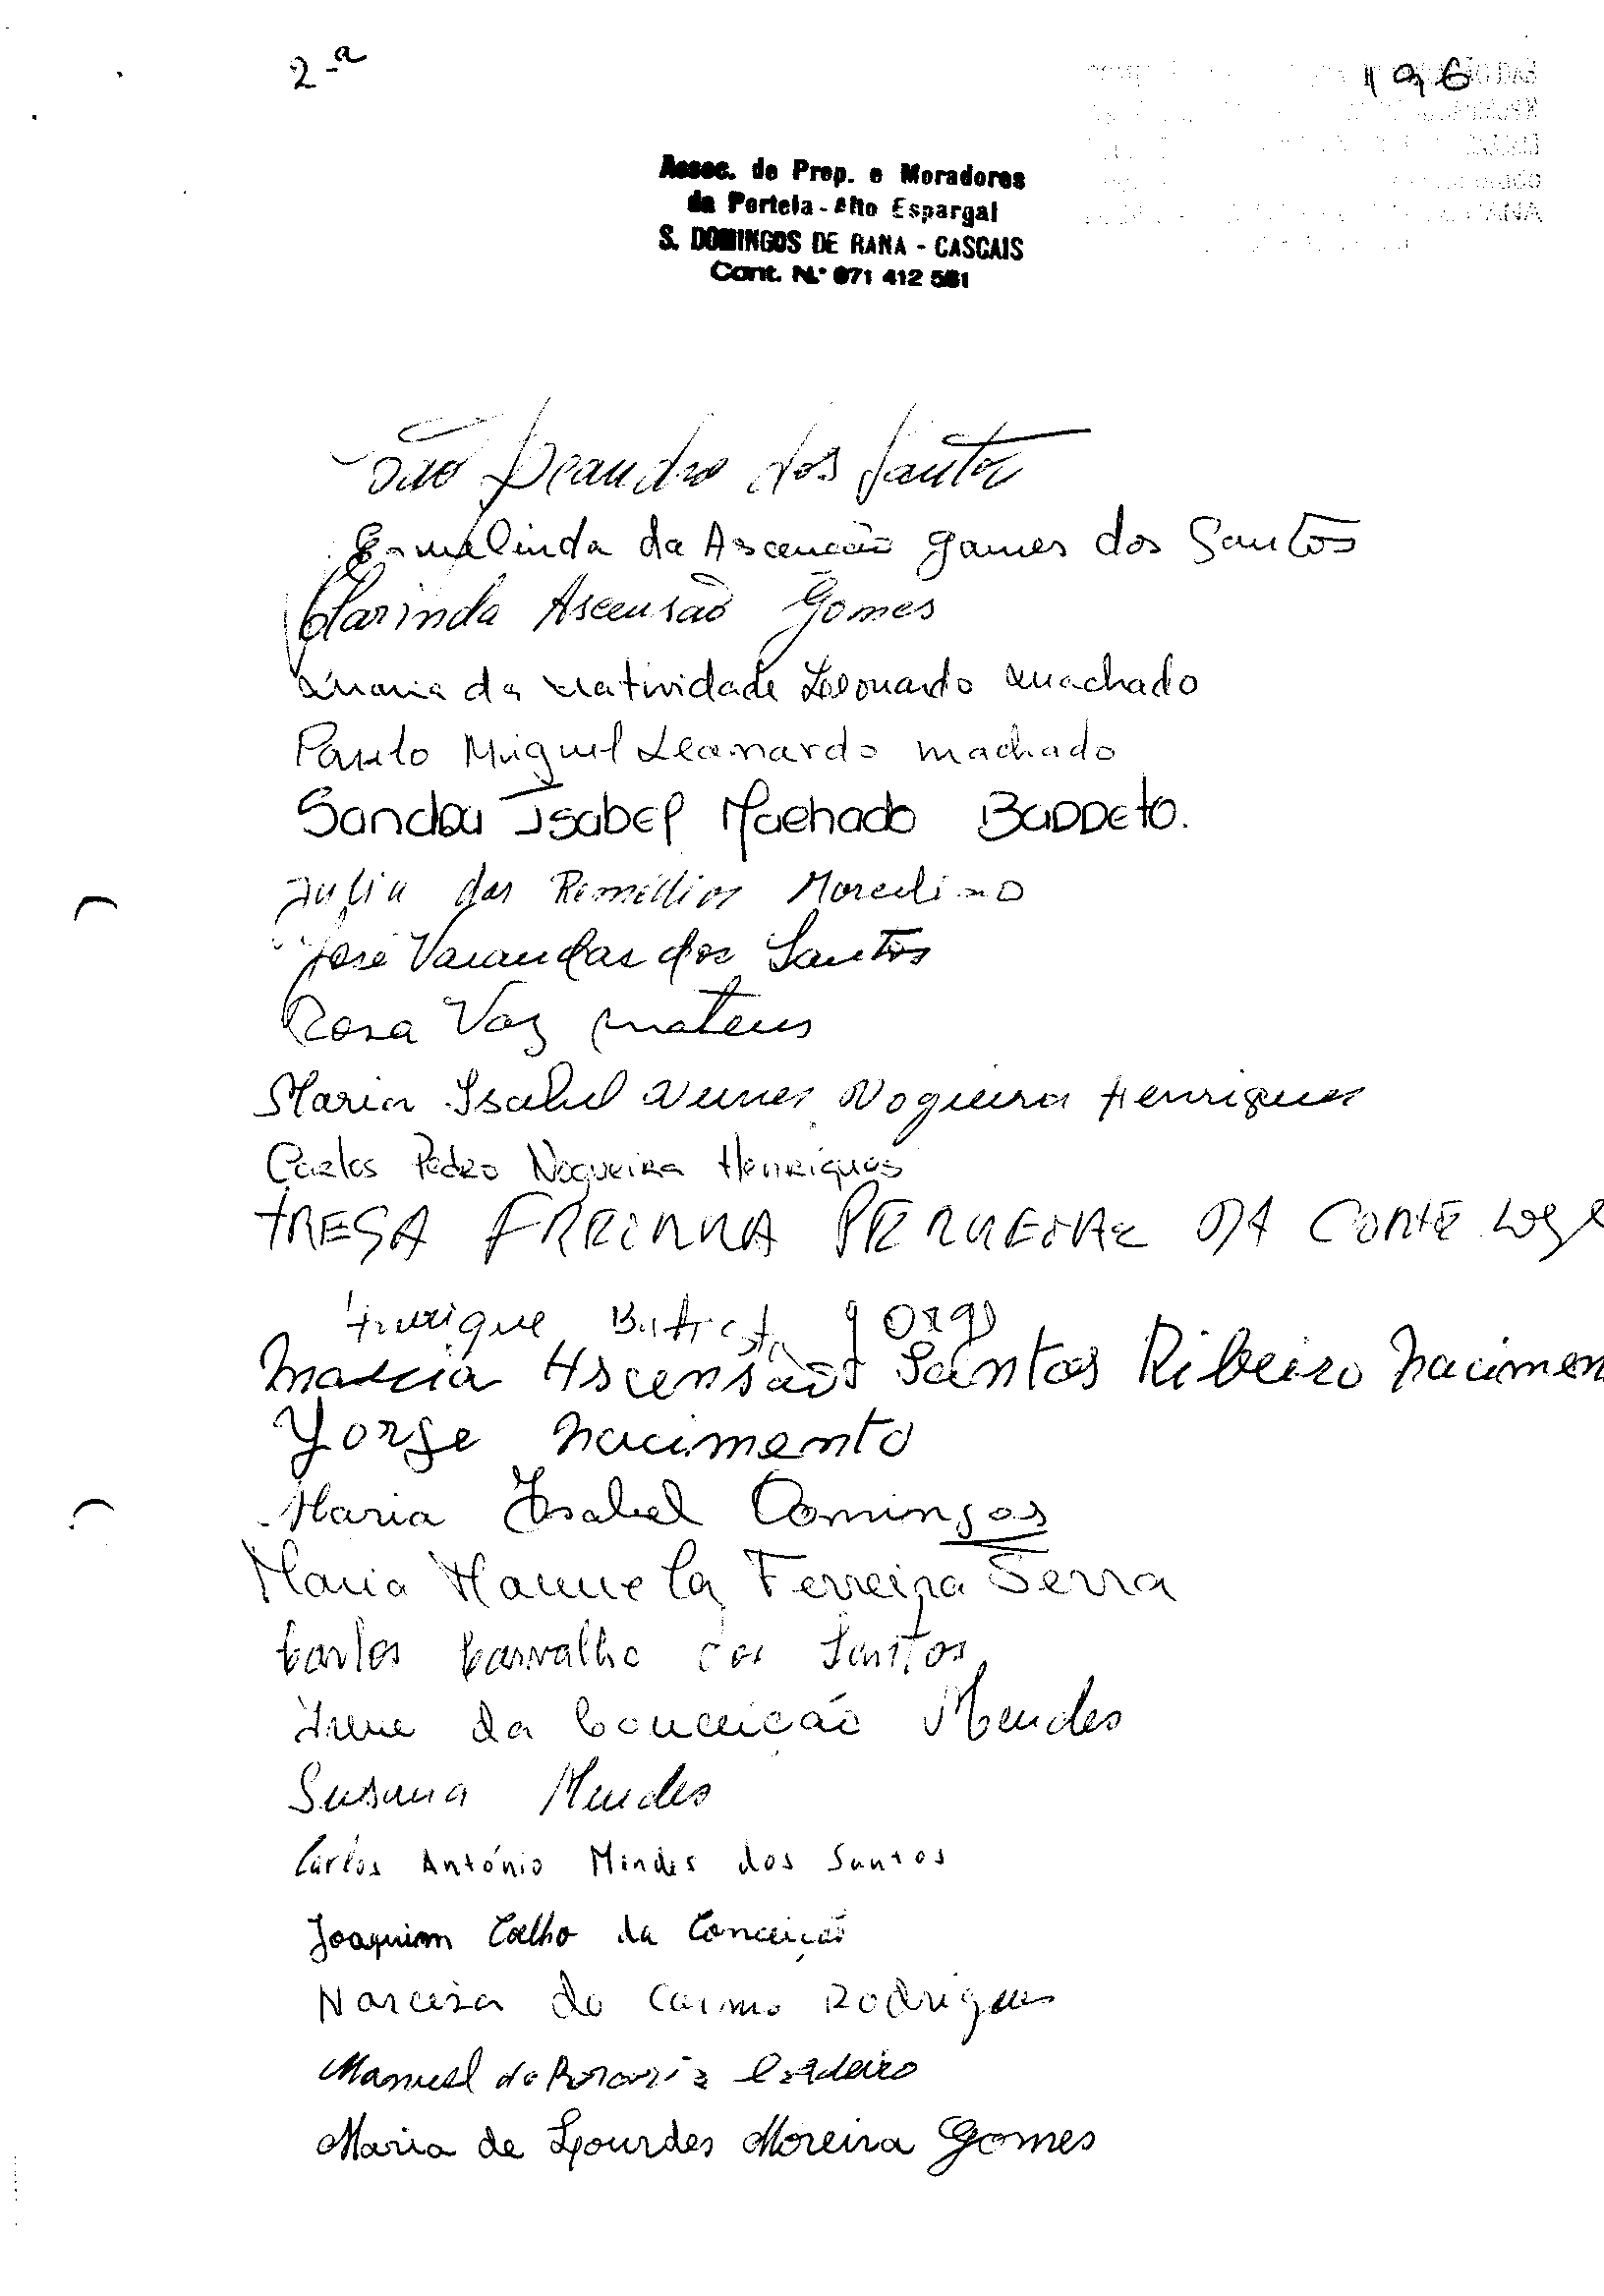 2-a
196
Assoc. de Prop. e Moradores
da Portela - Alto Espargal
S. DOMINGOS DE RANA - CASCAIS
Cont. N.º 971 412 581
João Leandro dos Santos
Ermelinda da Ascenção Gomes dos Santos
Clarinda Ascensão Gomes
Maria da Natividade Leonardo Machado
Paulo Miguel Leonardo Machado
Sandra Isabel Machado Barreto.
Julia dos Remédios Marcelino
José Varandas dos Santos
Rosa Vaz Mateus
Maria Isabel Nunes Nogueira Henriques
Carlos Pedro Nogueira Henriques
TRESA DA CORTE
Henrique Batista Jorge
Marcia Ascensão Santos Ribeiro Nacimen
Jorge Nacimento
Maria Isabel Domingos
Maria Manuela Ferreira Serra
Carlos Carvalho dos Santos
Irene da Conceição Mendes
Susana Mendes
Carlos António Mendes dos Santos
Joaquim Coelho da Conceição
Narcisa do Carmo Rodrigues
Manuel do Rosario Cordeiro
Maria de Lourdes Moreira Gomes